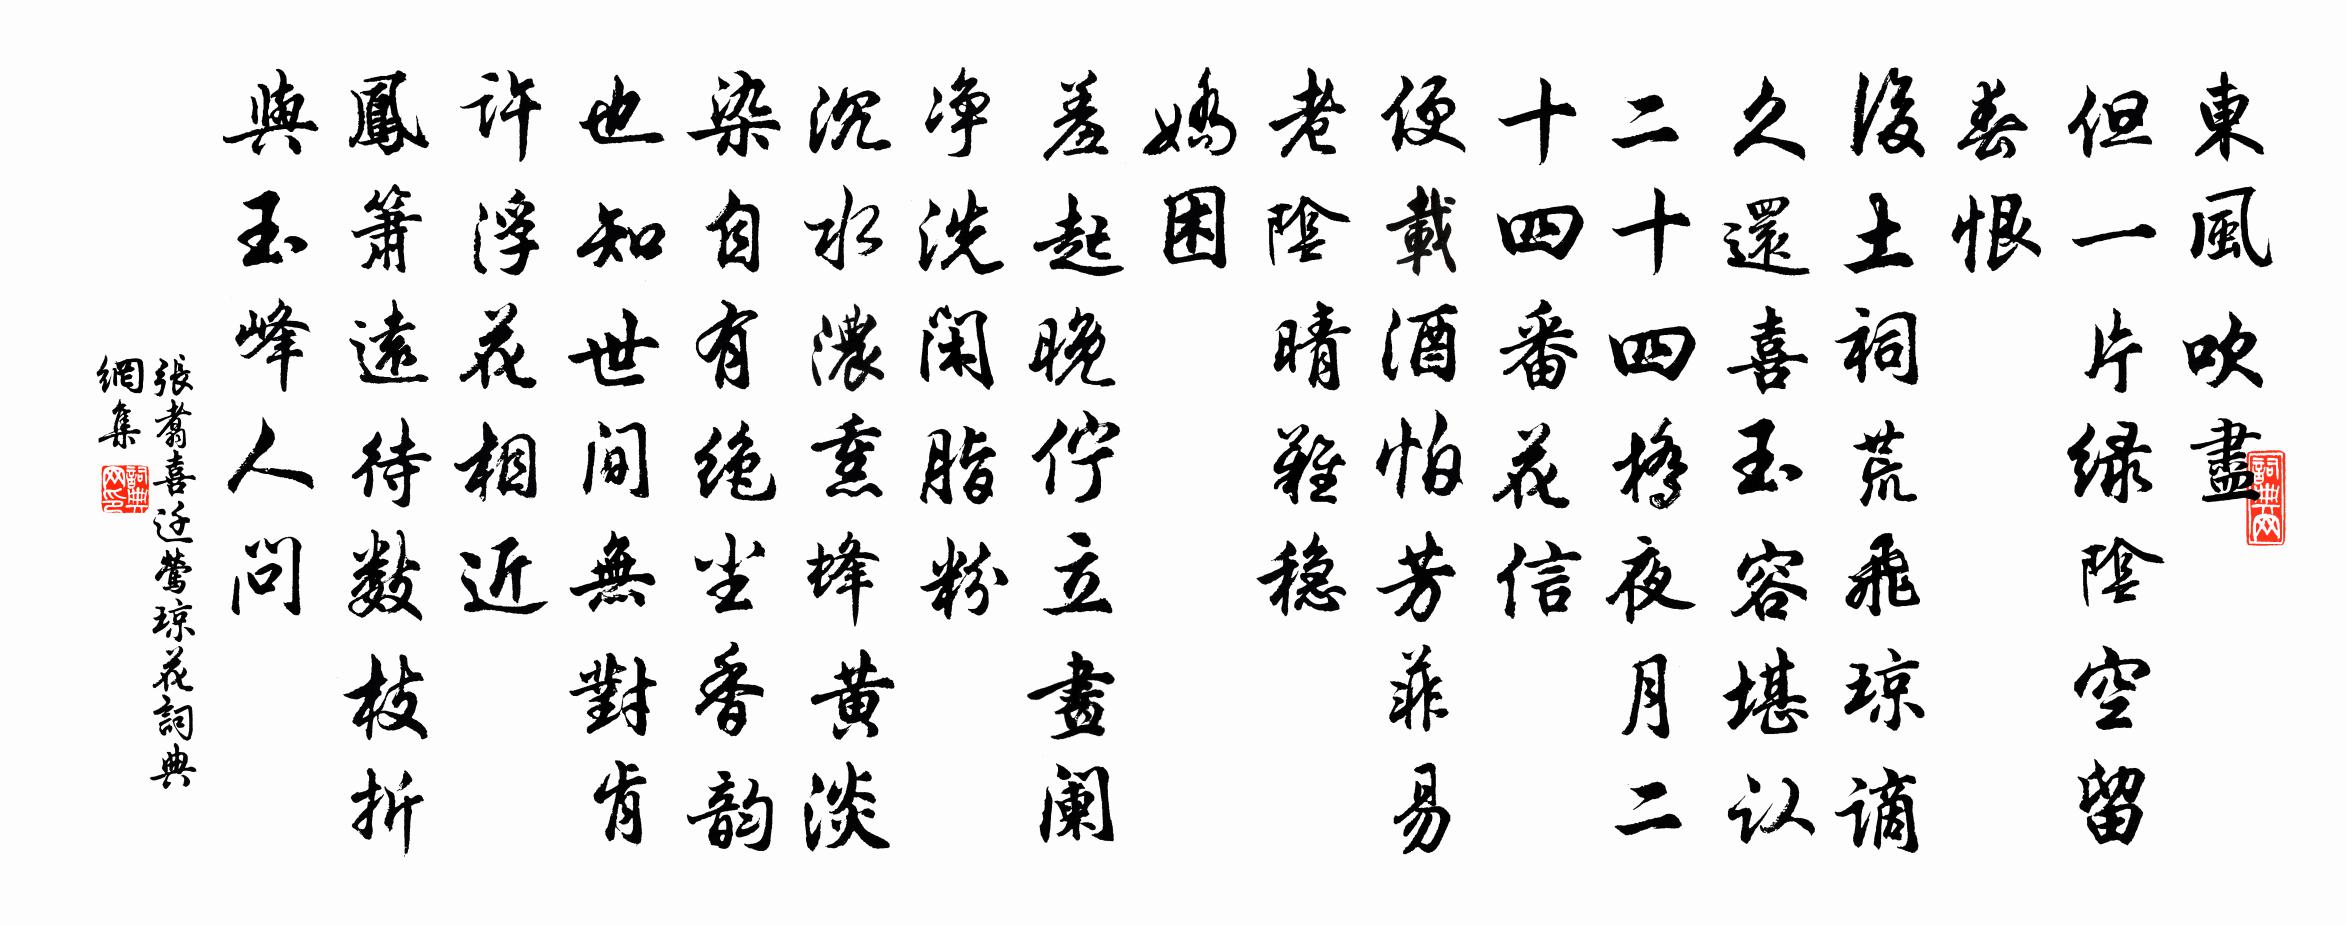 東風吹盡
但一片绿陰空留
春恨
後土祠荒飛琼谪
久還喜玉容堪认
二十四橋夜月二
十四番花信
便載酒怕芳菲易
老陰晴難稳
嬌困
羞起晚佇立畫阑
净洗闲脂粉
沉水濃熏蜂黄淡
染自有绝尘香韵
也知世间無對肯
许浮花相近
鳳簫遠待数枝折
與玉峰人问
張翥喜迁鶯琼花詞典
網集
詞典网
詞典网印